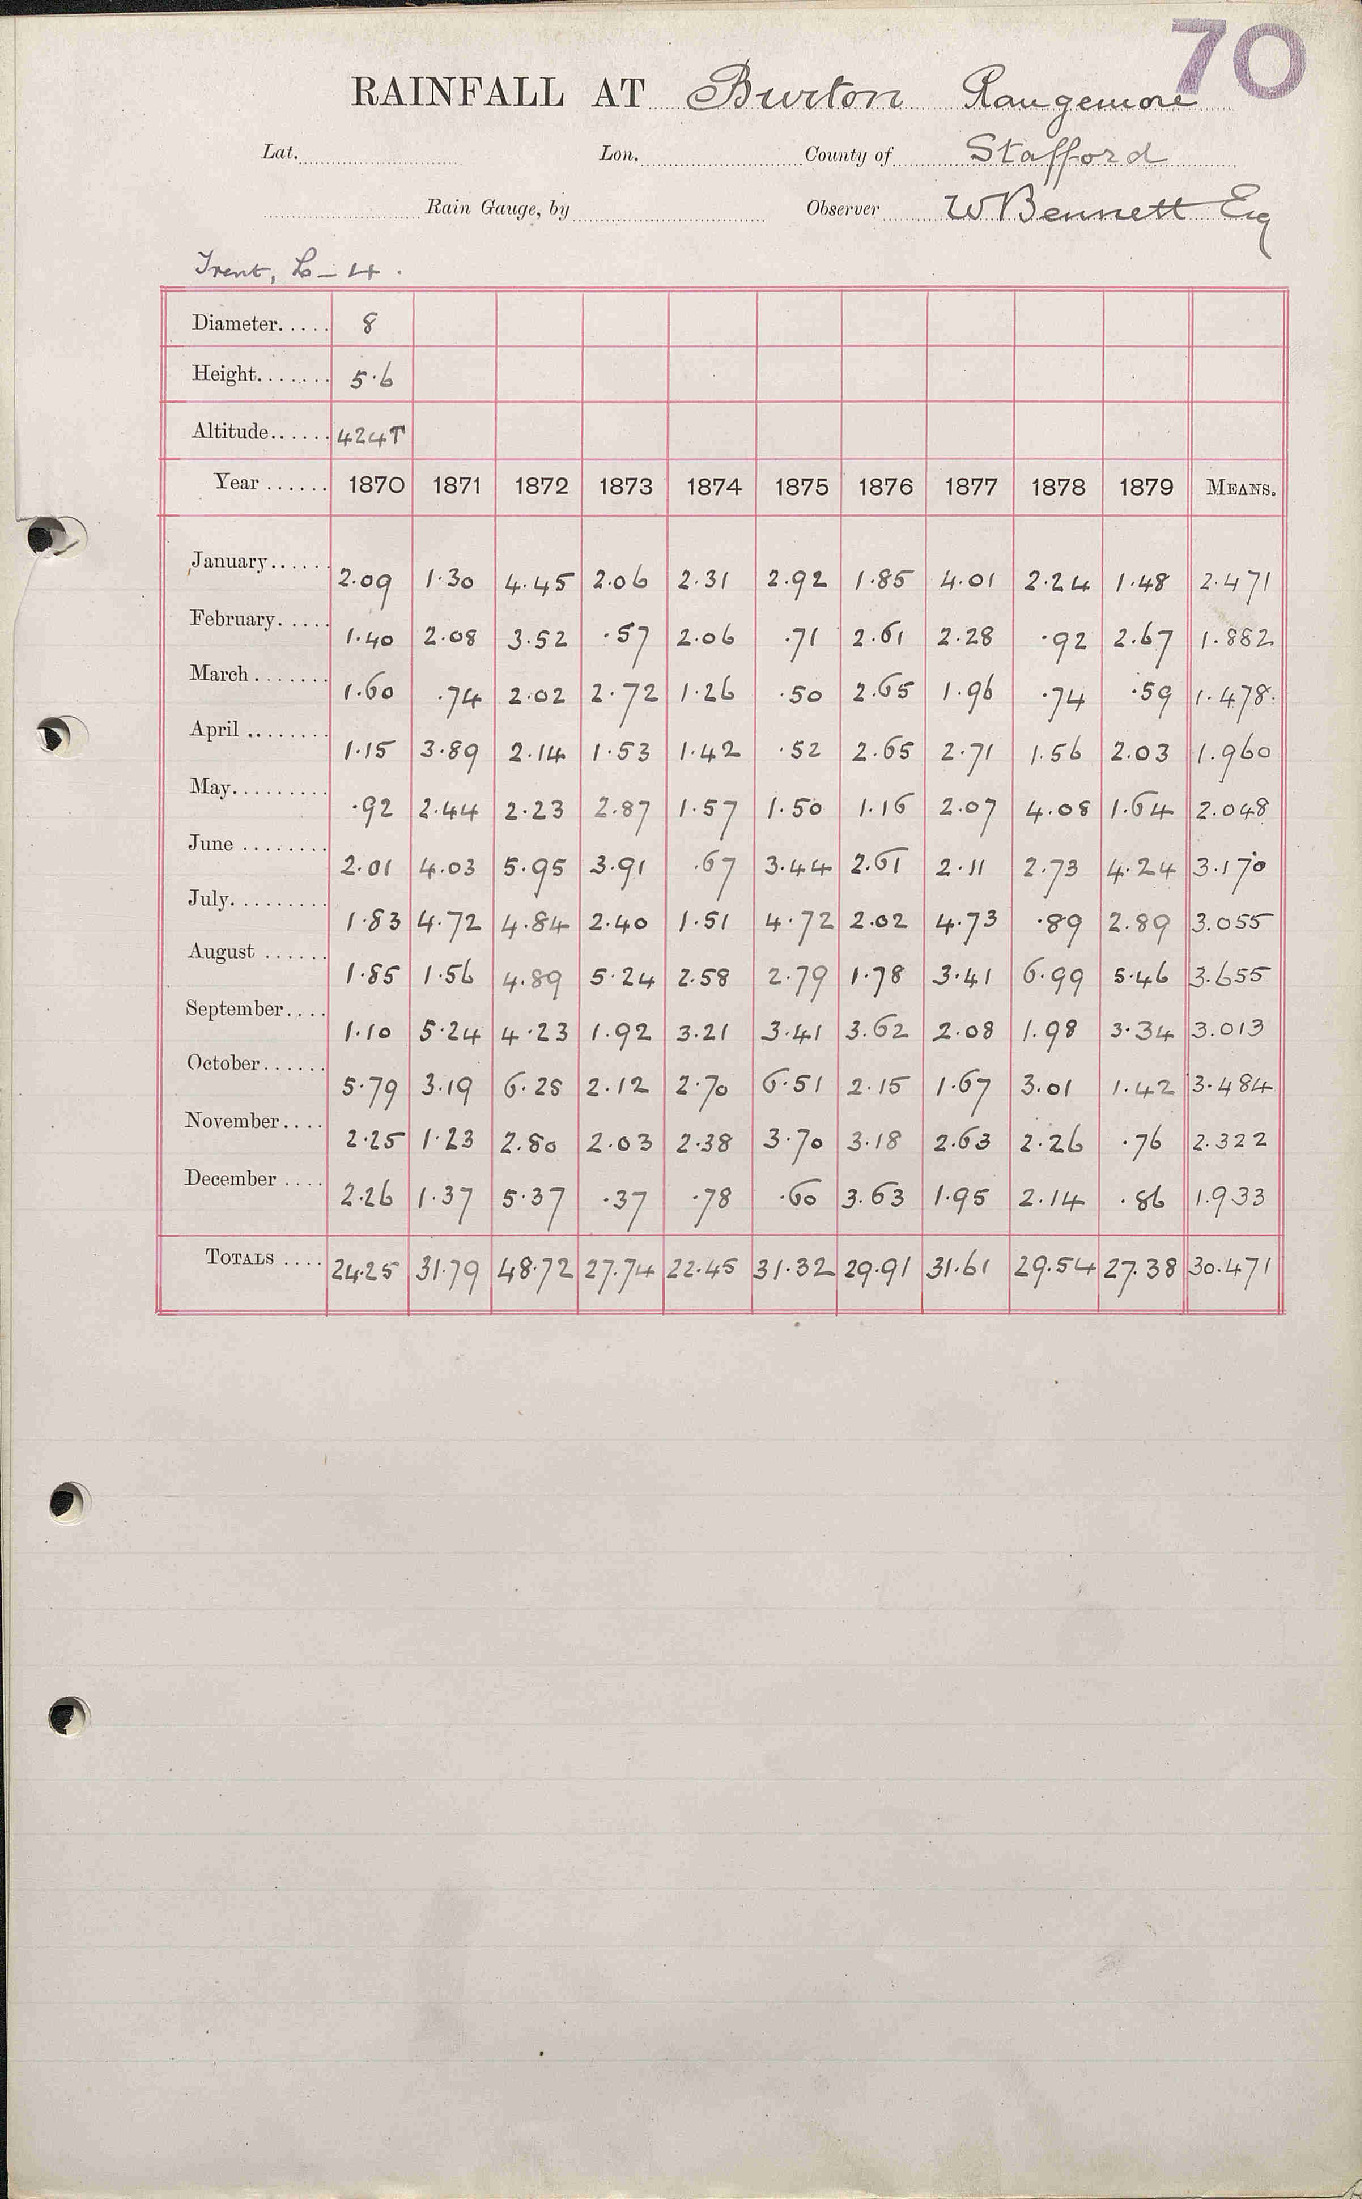 70
RAINFALL AT Burton Rangemore
Lat. Lon. County of Stafford
Rain Gauge, by Observer W Bennett Esq
Trent, L-4.
Diameter..... 8
Height....... 5.6
Altitude...... 424T
Year ...... 1870 1871 1872 1873 1874 1875 1876 1877 1878 1879 MEANS.
January...... 2.09 1.30 4.45 2.06 2.31 2.92 1.85 4.01 2.24 1.48 2.471
February..... 1.40 2.08 3.52 .57 2.06 .71 2.61 2.28 .92 2.67 1.882
March ....... 1.60 .74 2.02 2.72 1.26 .50 2.65 1.96 .74 .59 1.478
April ........ 1.15 3.89 2.14 1.53 1.42 .52 2.65 2.71 1.56 2.03 1.960
May......... .92 2.44 2.23 2.87 1.57 1.50 1.16 2.07 4.08 1.64 2.048
June ........ 2.01 4.03 5.95 3.91 .67 3.44 2.61 2.11 2.73 4.24 3.170
July......... 1.83 4.72 4.84 2.40 1.51 4.72 2.02 4.73 .89 2.89 3.055
August ...... 1.85 1.56 4.89 5.24 2.58 2.79 1.78 3.41 6.99 5.46 3.655
September.... 1.10 5.24 4.23 1.92 3.21 3.41 3.62 2.08 1.98 3.34 3.013
October...... 5.79 3.19 6.28 2.12 2.70 6.51 2.15 1.67 3.01 1.42 3.484
November.... 2.25 1.23 2.80 2.03 2.38 3.70 3.18 2.63 2.26 .76 2.322
December .... 2.26 1.37 5.37 .37 .78 .60 3.63 1.95 2.14 .86 1.933
TOTALS .... 24.25 31.79 48.72 27.74 22.45 31.32 29.91 31.61 29.54 27.38 30.471